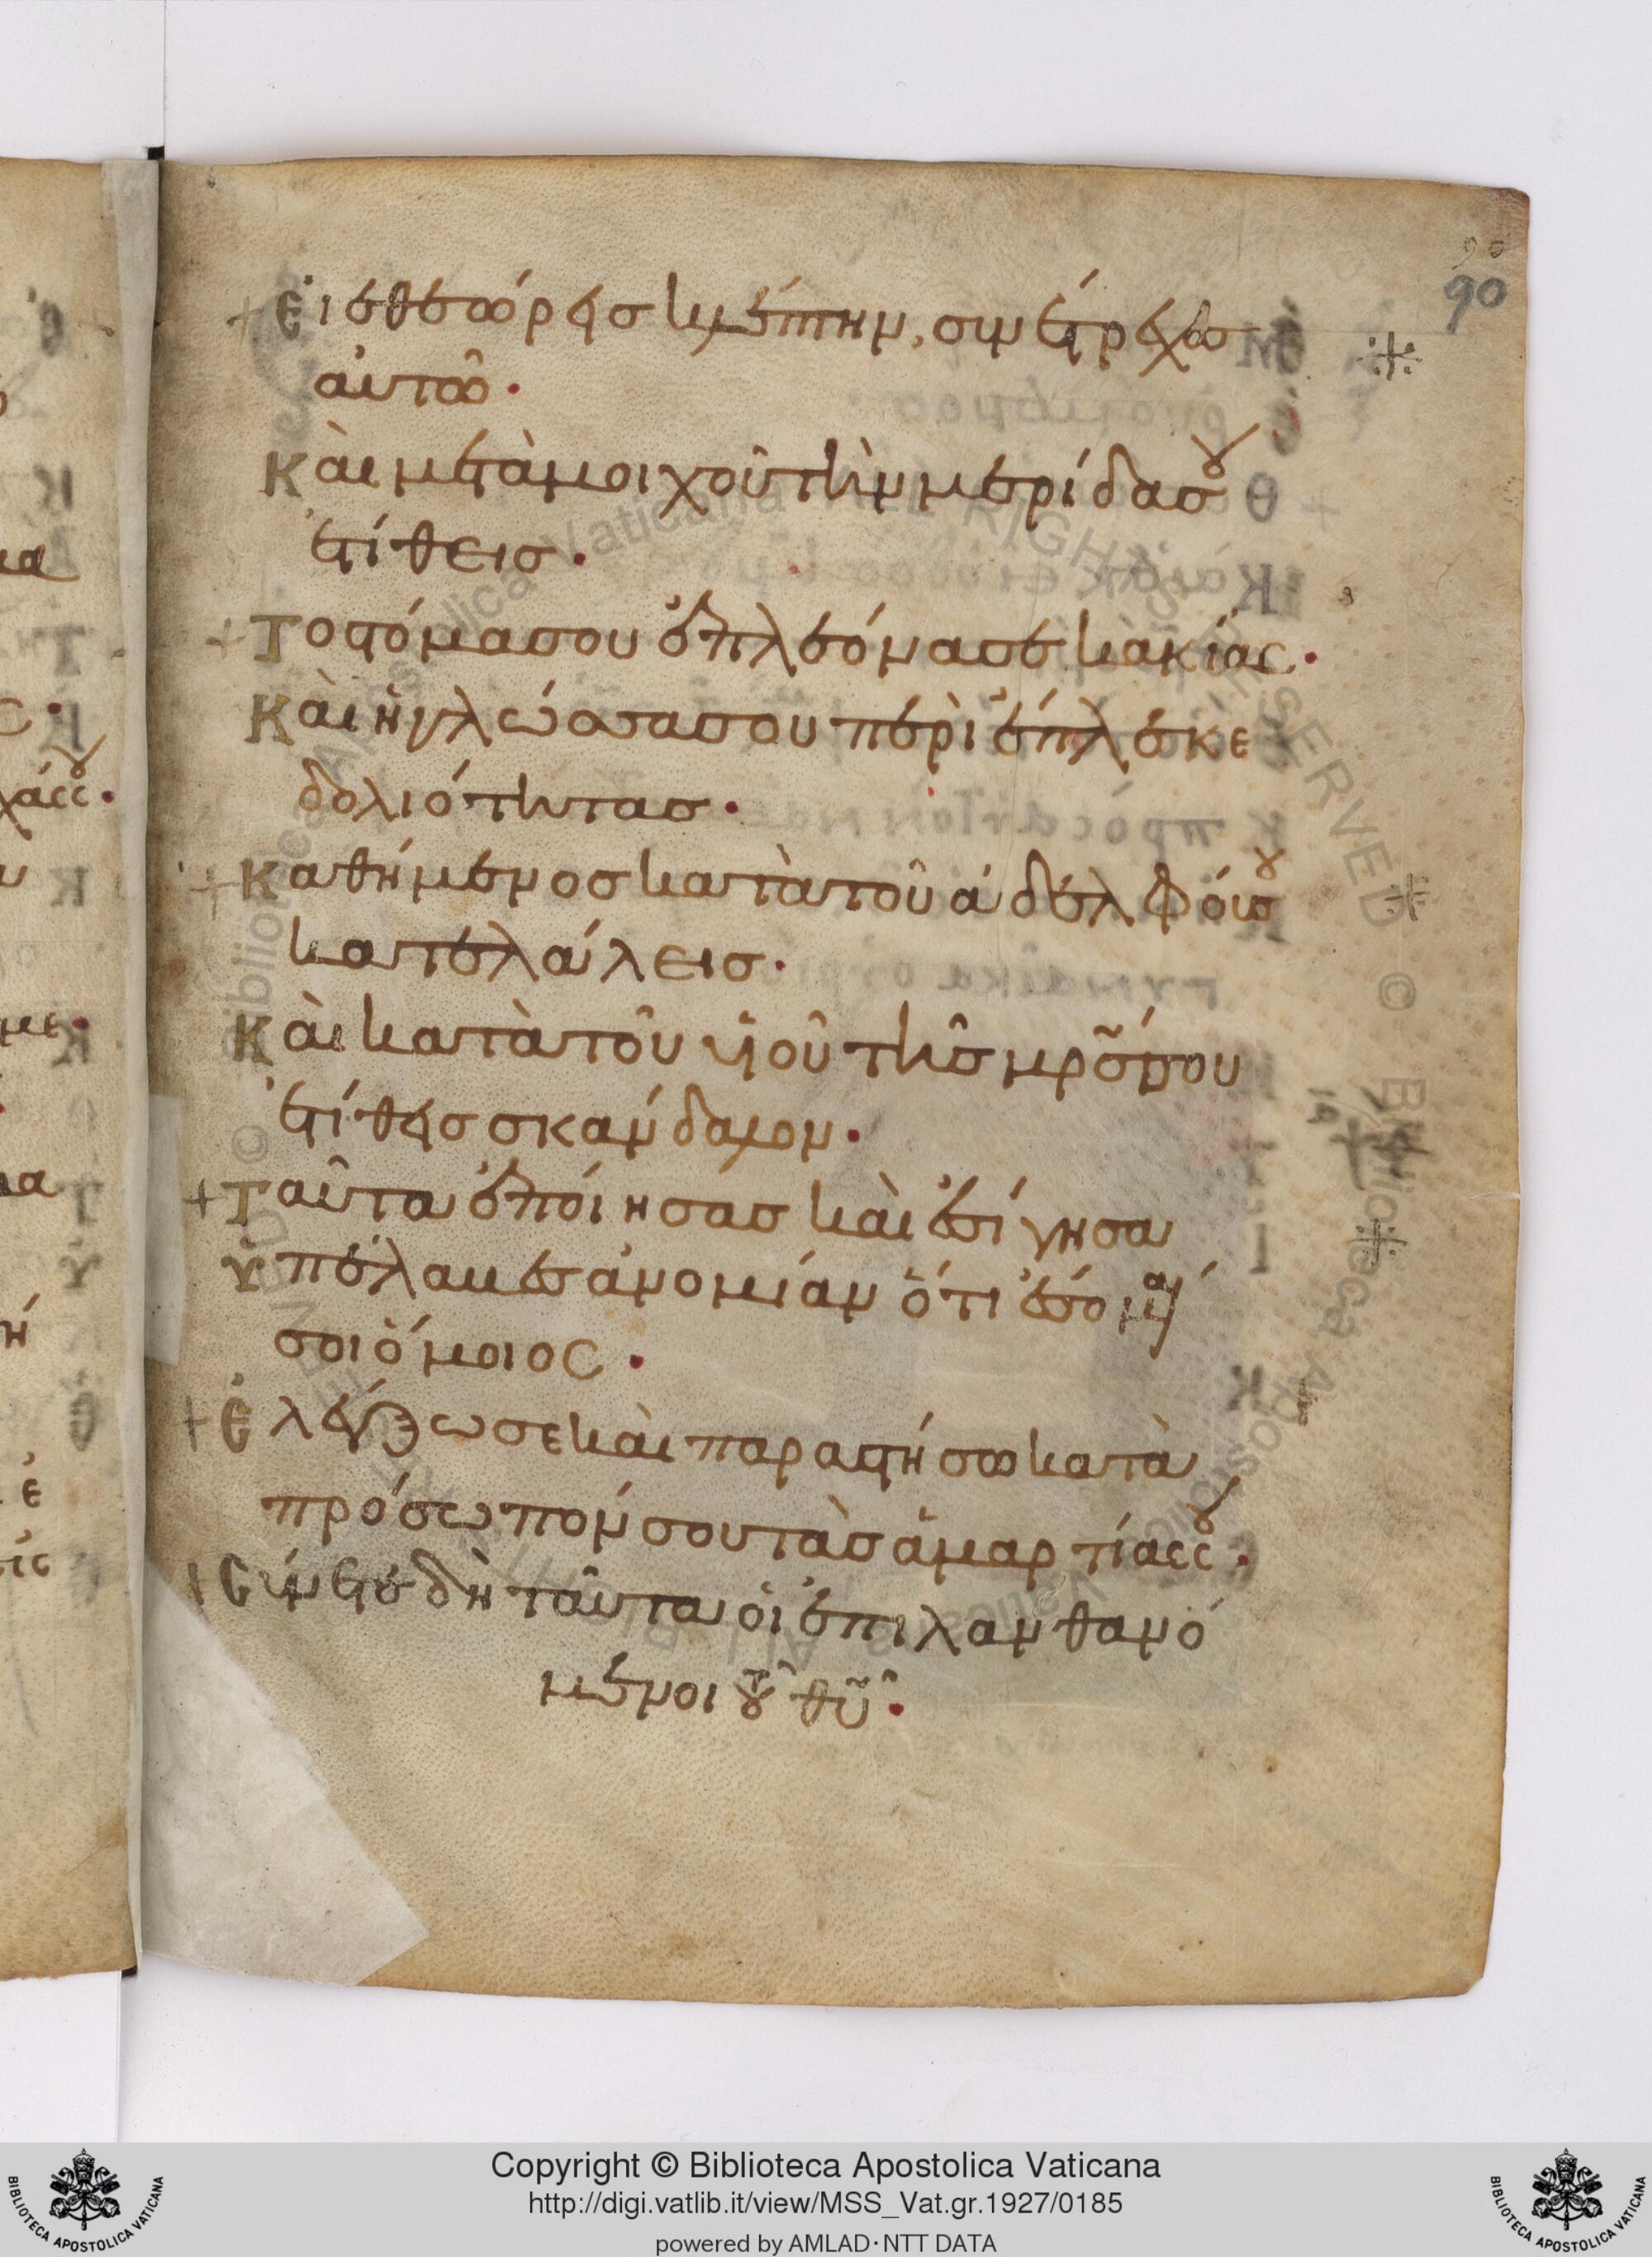 90
90
+ Ἐι ἐθεώρεις κλέπτην, συνέτρεχες
ἀυτῶ.
Κὰι μετὰ μοιχοῦ τὴν μερίδα σου
ἐτίθεις.
+ Τὸ στόμα σου ἐπλεόνασε κακίας.
Κὰι ἡ γλώσσα σου περιέπλεκε
δολιότητας.
+ Καθήμενος κατὰ τοῦ ἀδελφού σου
κατελάλεις.
Κὰι κατὰ τοῦ ὑιοῦ τῆς μρ̃ς σου
ἐτίθεις σκάνδαλον.
+ Ταῦτα ἐποίησας κὰι ἐσίγησα
Ὑπέλαβες ἀνομίαν ὅτι ἔσομαί
σοι ὅμοιος.
+ Ἐλέγξω σε κὰι παραστήσω κατὰ
πρόσωπόν σου τὰς ἁμαρτίας σου.
+ Σύνετε δὴ ταῦτα ὁι ἐπιλανθανό
μενοι τοῦ θυ̃.
Copyright © Biblioteca Apostolica Vaticana
http://digi.vatlib.it/view/MSS_Vat.gr.1927/0185
powered by AMLAD·NTT DATA
BIBLIOTECA APOSTOLICA VATICANA
BIBLIOTECA APOSTOLICA VATICANA